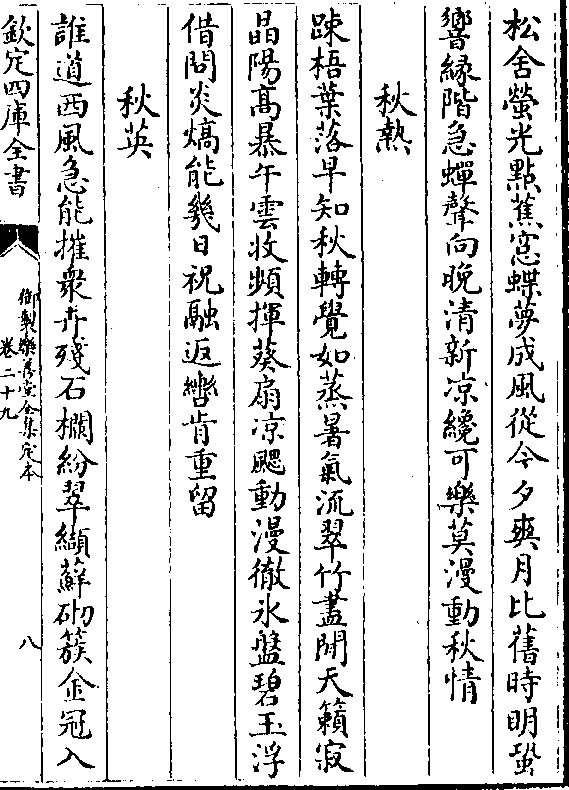 松舍螢光點蕉窓蝶夢成風從今夕爽月比舊時明蛩
響緣階急蟬聲向晚清新凉纔可樂莫漫動秋情
秋熱
踈梧葉落早知秋轉覺如蒸暑氣流翠竹畫閒天籟寂
晶陽高暴午雲收頻揮葵扇凉颸動漫徹氷盤碧玉浮
借問炎熇能幾日祝融返轡肯重留
秋英
誰道西風急能摧衆卉殘石欄紛翠纈蘚砌簇金冠入
欽定四庫全書
御製樂善堂全集定本
卷二十九
八